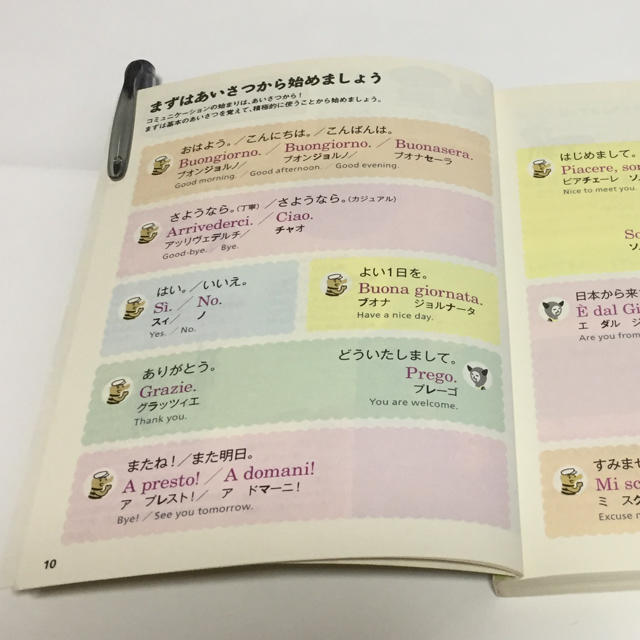 まずはあいさつから始めましょう
コミュニケーションの始まりは、あいさつから！
まずは基本のあいさつを覚えて、積極的に使うことから始めましょう。
おはよう。／こんにちは。／こんばんは。
Buongiorno.／Buongiorno.／Buonasera.
ブオンジョルノ／ブオンジョルノ／ブオナセーラ
Good morning.／Good afternoon.／Good evening.
さようなら。(丁寧)／さようなら。(カジュアル)
Arrivederci.／Ciao.
アッリヴェデルチ／チャオ
Good-bye.／Bye.
はい。／いいえ。
Sì.／No.
スィ／ノ
Yes.／No.
よい1日を。
Buona giornata.
ブオナ ジョルナータ
Have a nice day.
ありがとう。
Grazie.
グラッツィエ
Thank you.
どういたしまして。
Prego.
プレーゴ
You are welcome.
またね！／また明日。
A presto!／A domani!
ア プレスト!／ア ドマーニ!
Bye!／See you tomorrow.
10
はじめまして。
Piacere, son
ピアチェーレ ソ
Nice to meet you.
So
ソ
日本から来
È dal Gi
エ ダル ジ
Are you from
すみませ
Mi sc
ミ スク
Excuse m